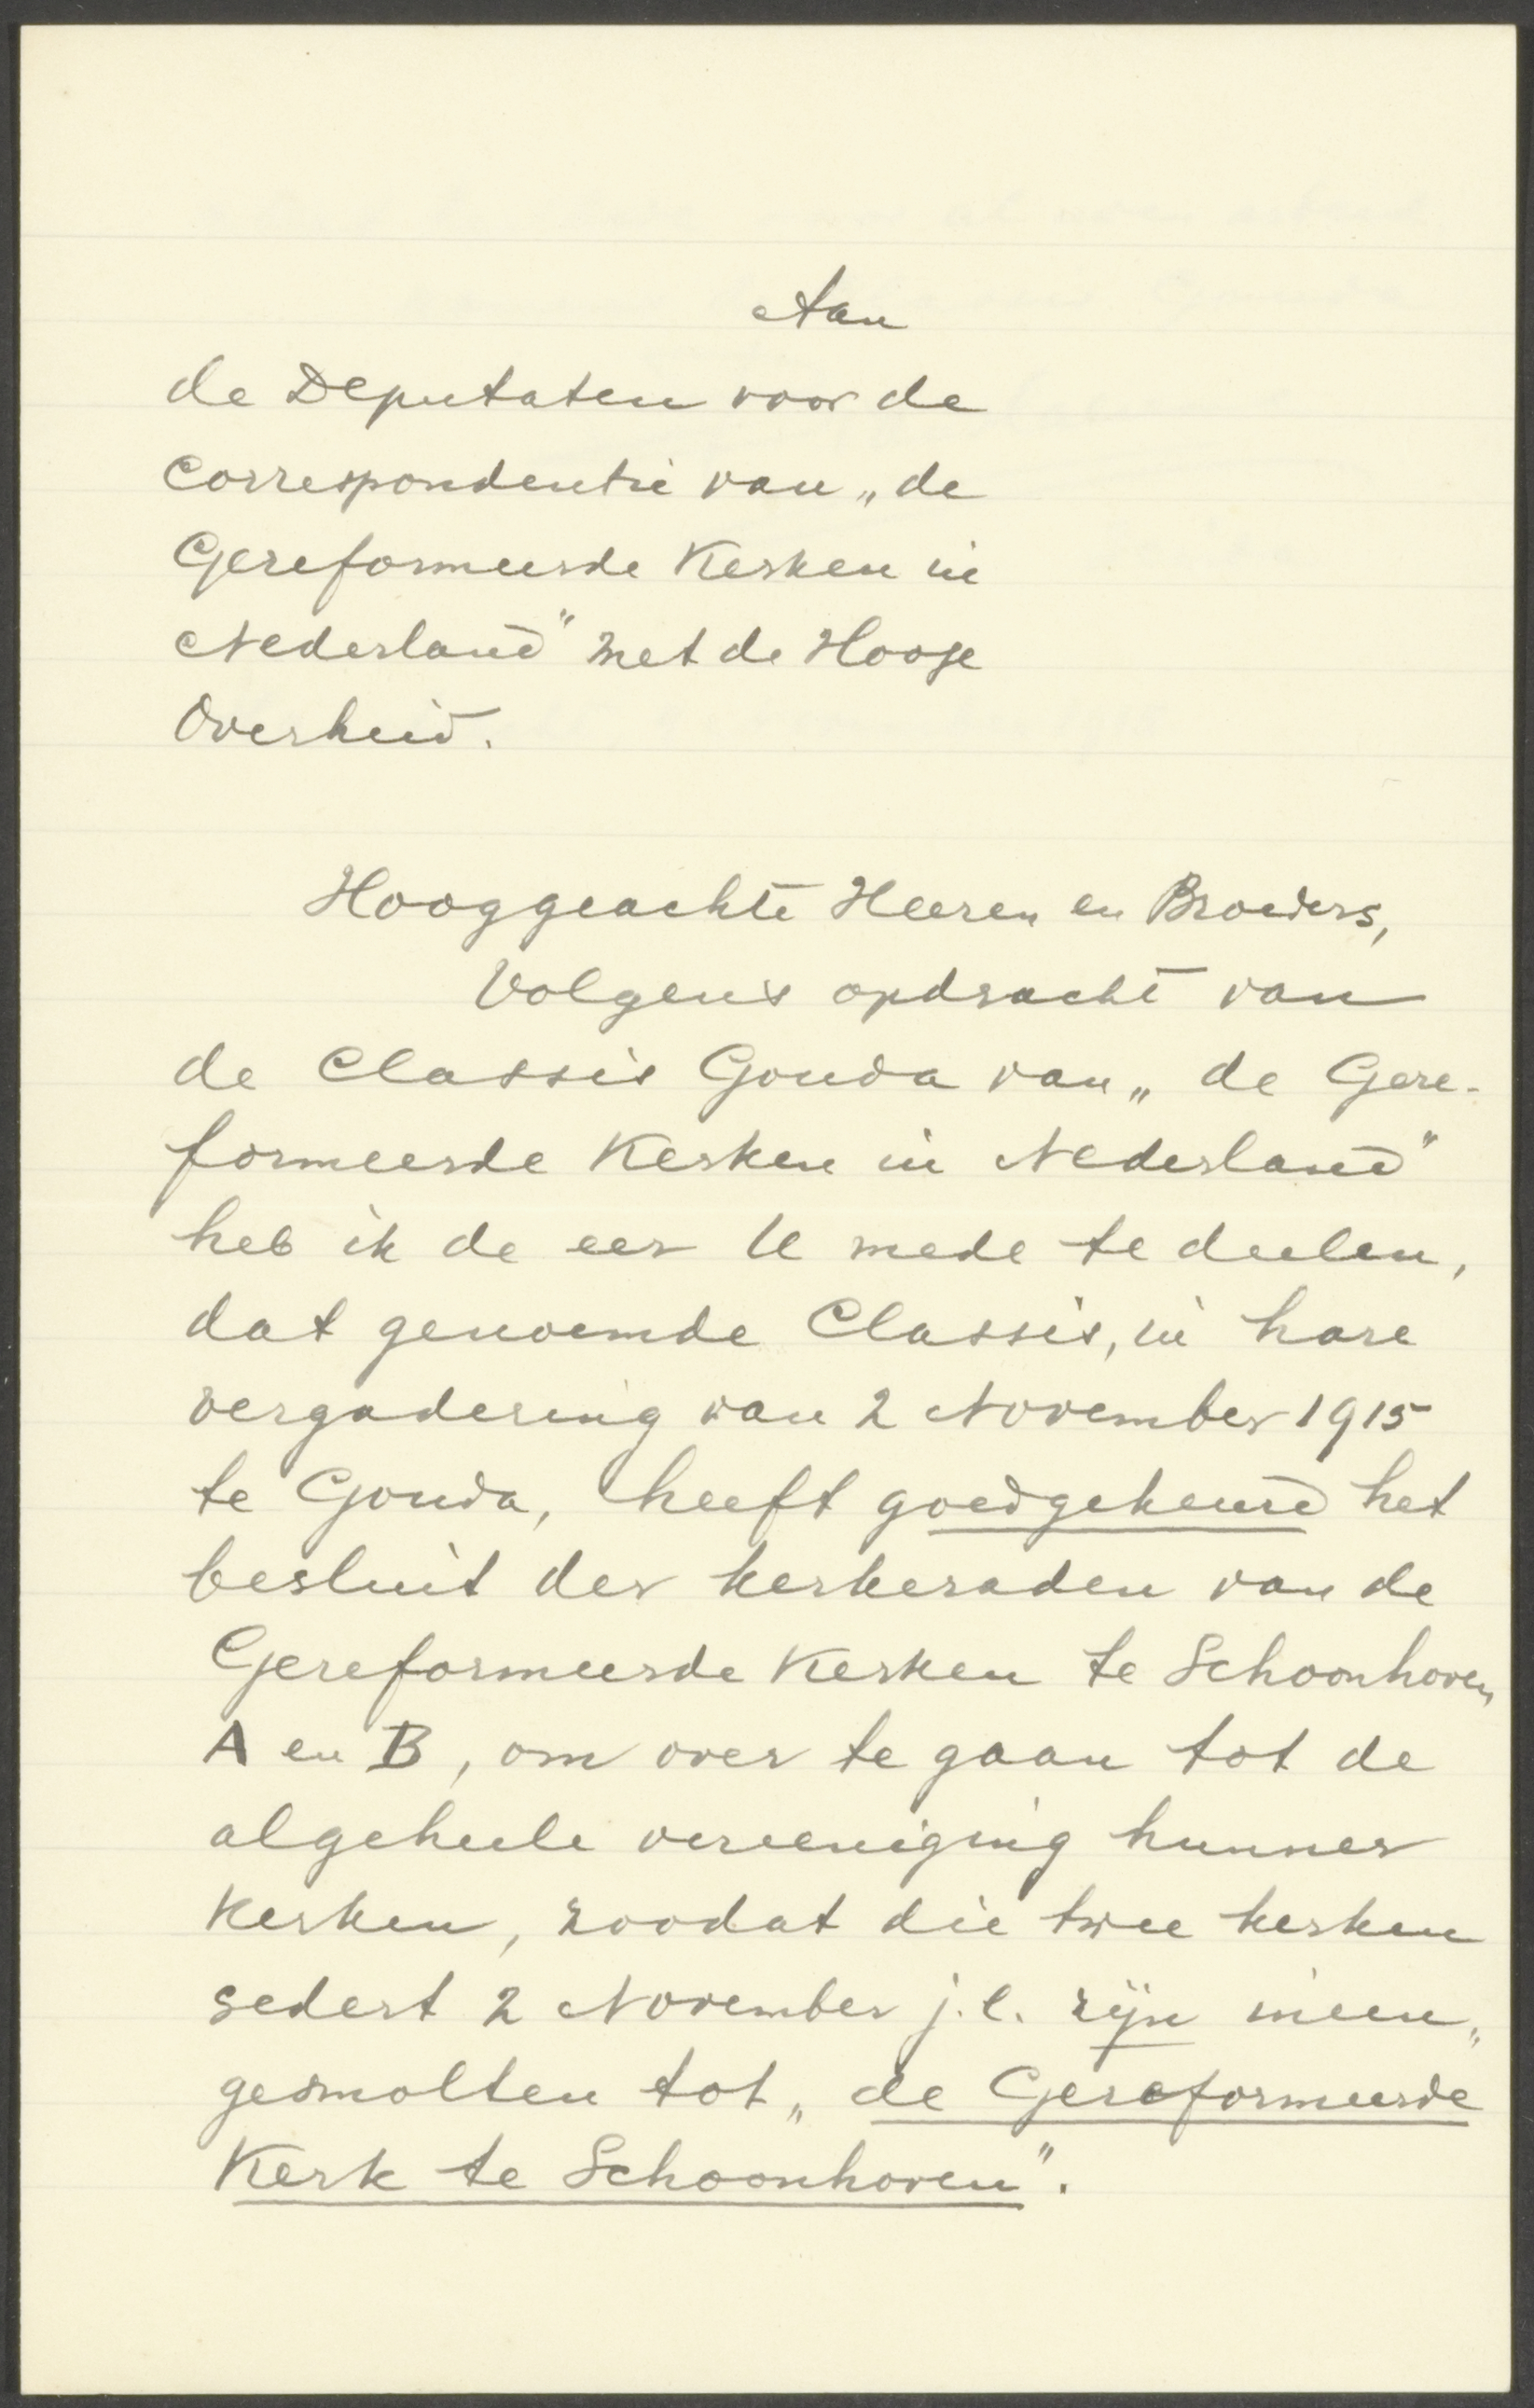 Aan
de Deputaten voor de
Correspondentie van „de
Gereformeerde Kerken in
Nederland" met de Hooge
Overheid.
Hooggeachte Heeren en Broeders,
Volgens opdracht van
de Classis Gouda van „de Gere-
formeerde Kerken in Nederland"
heb ik de eer U mede te deelen,
dat genoemde Classis, in hare
vergadering van 2 November 1915
te Gouda, heeft goedgekeurd het
besluit der kerkeraden van de
Gereformeerde Kerken te Schoonhoven
A en B, om over te gaan tot de
algeheele vereeniging hunner
Kerken, zoodat die twee kerken
sedert 2 November j.l. zijn ineen„
gesmolten tot „de Gereformeerde
Kerk te Schoonhoven".